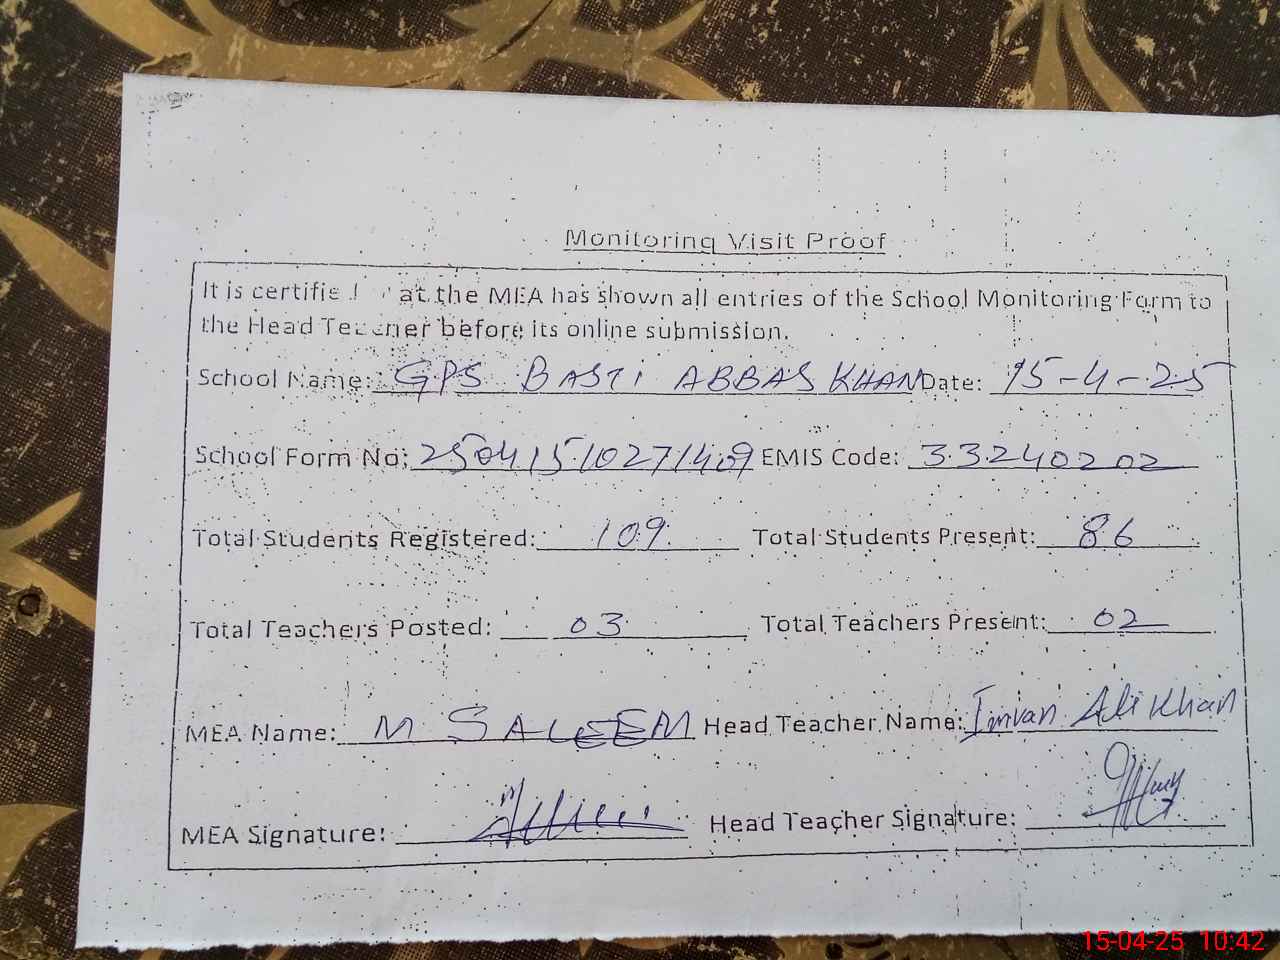 Monitoring Visit Proof
It is certified that the MEA has shown all entries of the School Monitoring Form to
the Head Teacher before its online submission.
School Name: GPS BASTI ABBAS KHAN Date: 15-4-25
School Form No: 25041510271409 EMIS Code: 33240202
Total Students Registered: 109 Total Students Present: 86
Total Teachers Posted: 03 Total Teachers Present: 02
MEA Name: M SALEEM Head Teacher Name: Imran Ali Khan
MEA Signature: Head Teacher Signature:
15-04-25 10:42